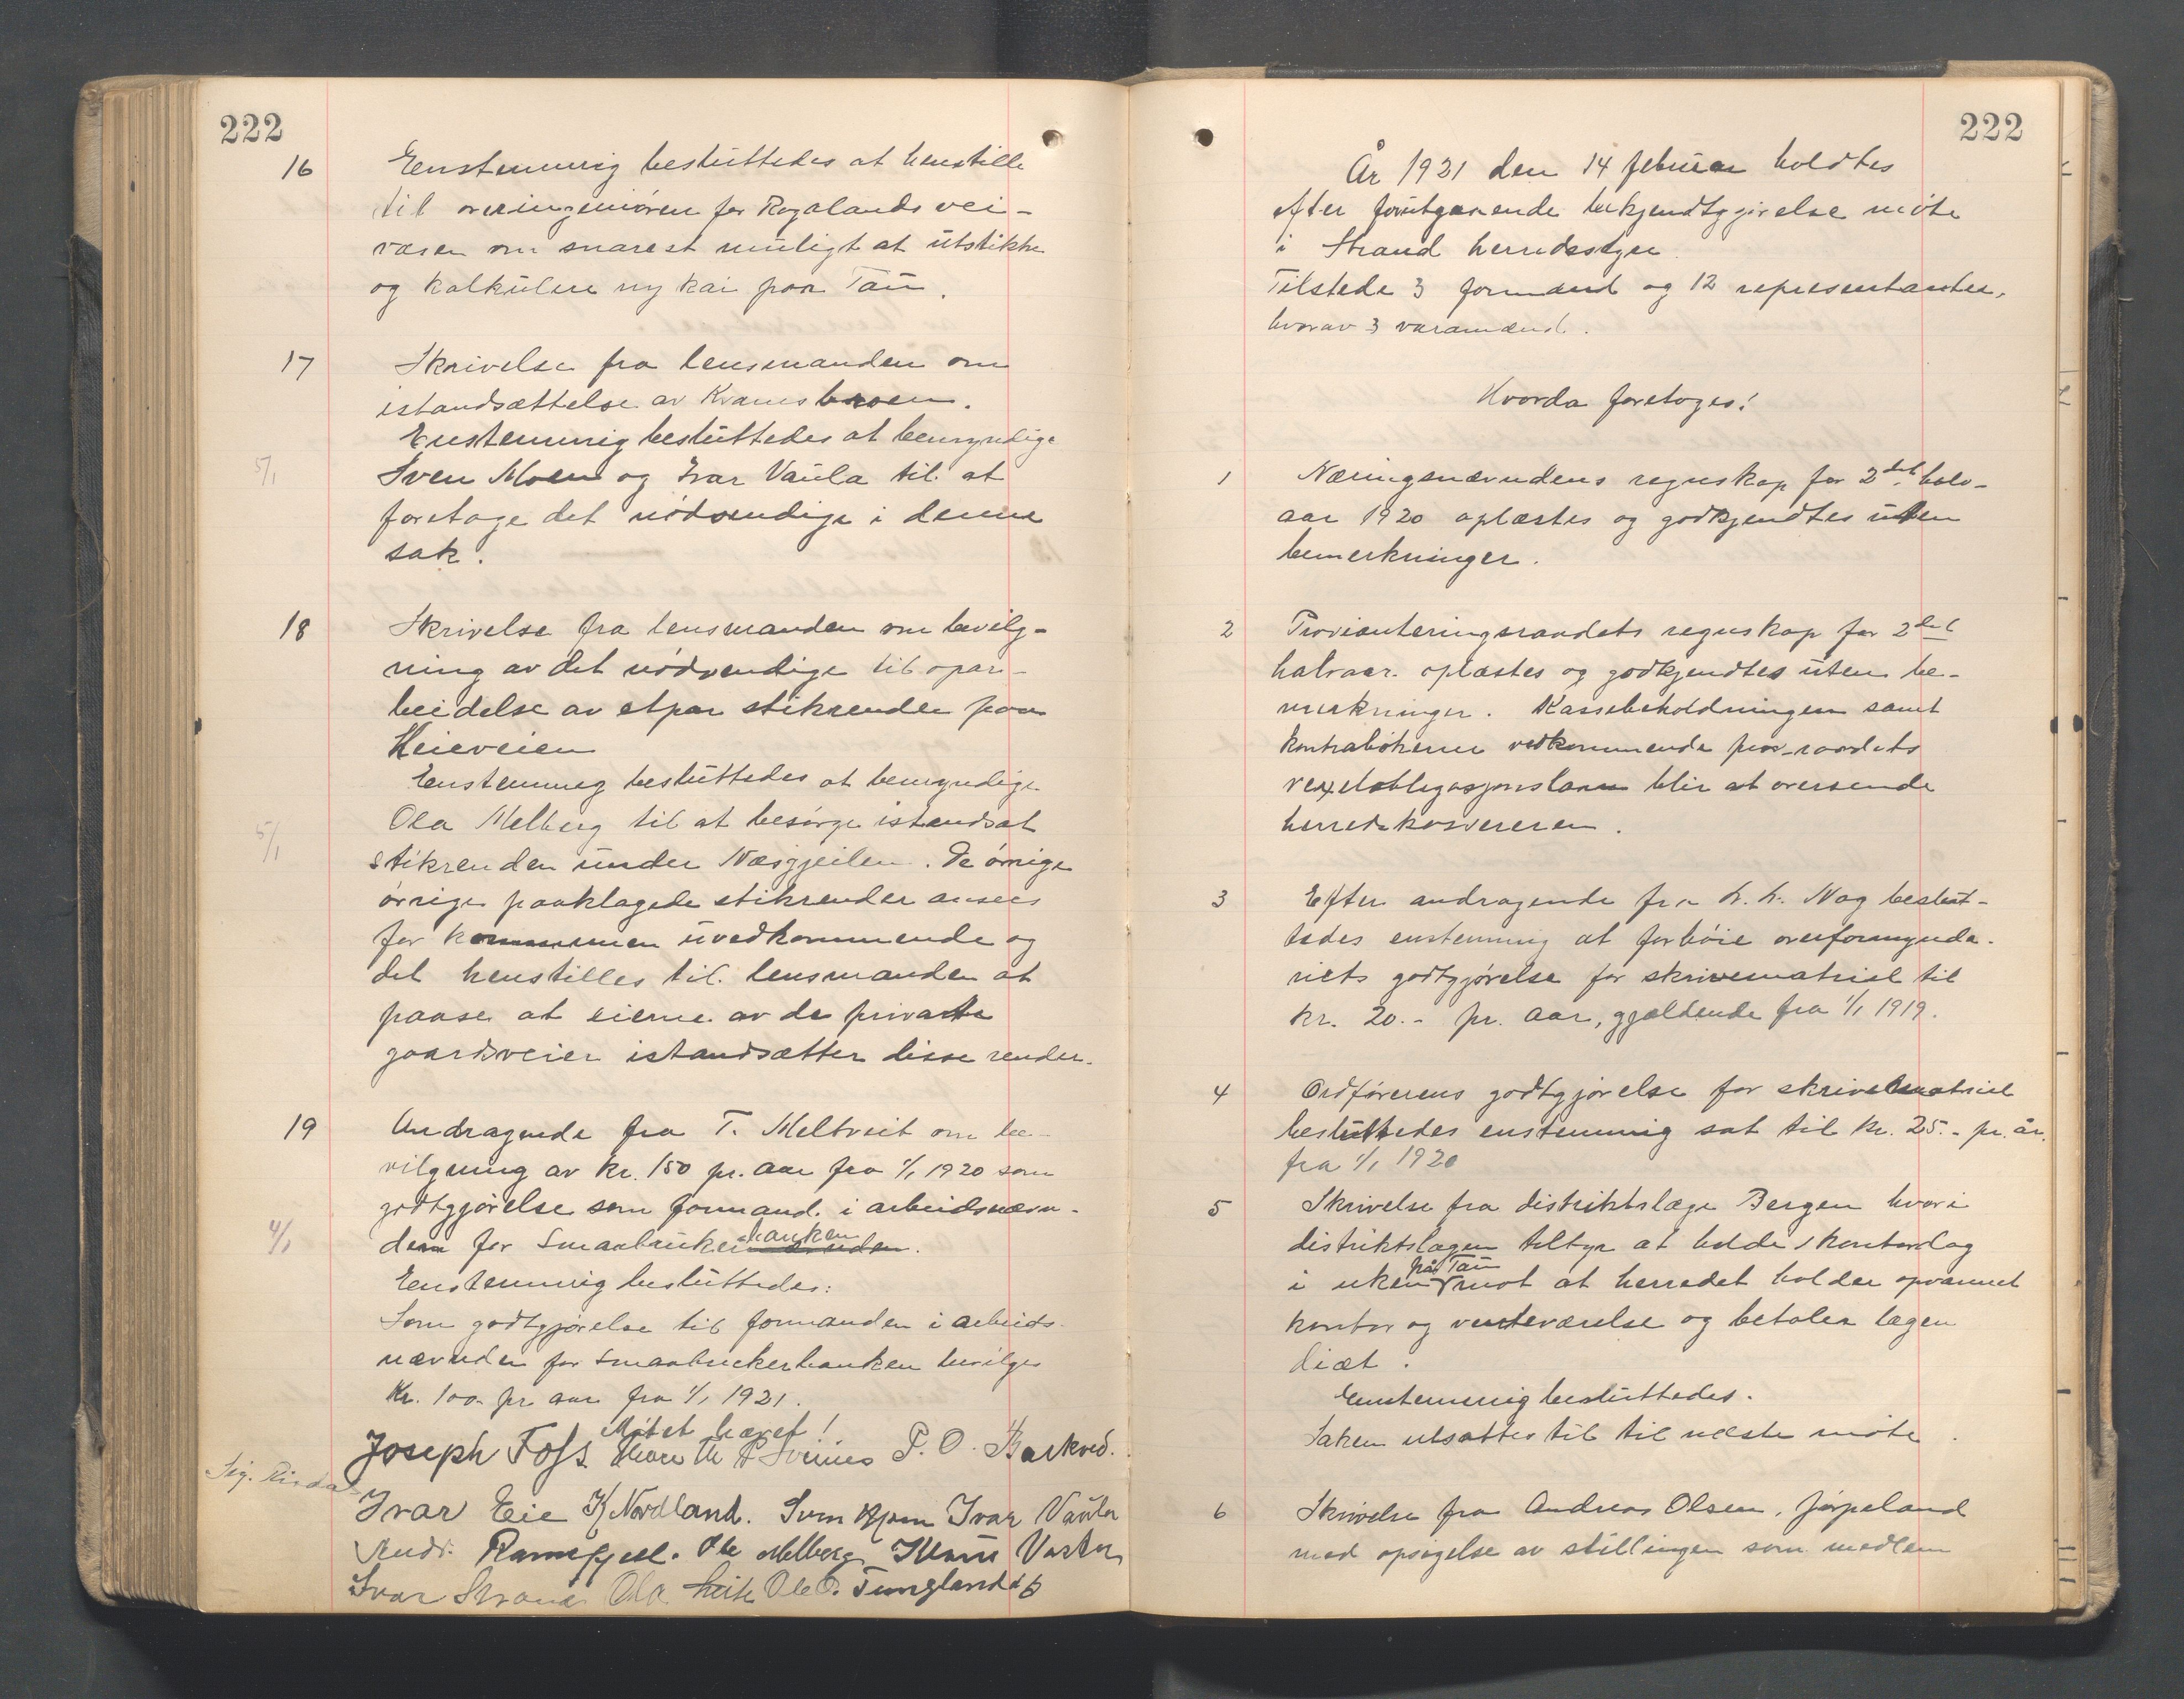 222
16 Eenstemmig besluttedes at henstille
til overingeniören for Rogalands vei-
væsen om snarest muligt at utstikke
og kalkulere ny kai paa Tau.
17 Skrivelse fra lensmanden om
istandsættelse av Kvamsbroen.
Enstemmig besluttedes at bemyndige
5/1 Sven Moen og Ivar Vaula til at
foretage det nödvendige i denne
sak.
18 Skrivelse fra lensmanden om bevilg-
ning av det nödvendige til opar-
beidelse av etpar stikrender paa
Heieveien
Eenstemmig besluttedes at bemyndige
5/1 Ola Melberg til at besörge istandsat
stikrenden under Næsgjeilen. De övrige
övrige paaklagede stikrender ansees
for kommunen uvedkommende og
det henstilles til lensmanden at
paase at eierne av de private
gaardsveier istandsætter disse render.
19 Andragende fra T. Meltveit om be-
vilgning av kr. 150 pr. aar fra 1/1 1920 som
godtgjörelse som formand i arbeidsnævn-
4/1 den for Smaabruker banken.
Eenstemmig besluttedes:
Som godtgjörelse til formanden i arbeids-
nævnden for Smaabrukerbanken bevilges
Kr. 100- pr aar fra 1/1 1921.
Mötet hævet!
Joseph Foss Thore Th P. O. Barkved.
Sig. Rindal
Ivar Eie K Nordland. Sven Moen Ivar Vaula
Andr. Ramsfjell. Ole Melberg
Ivar Strand Ola Ole O. Tungland
222
År 1921 den 14 februar holdtes
efter forutgaaende bekjendtgjörelse möte
i Strand herredsstyre.
Tilstede 3 formænd og 12 representanter,
hvorav 3 varamænd.
Hvorda foretoges!
1 Næringsnævndens regnskap for 2det halv-
aar 1920 oplæstes og godkjendtes uten
bemerkninger.
2 Provianteringsraadets regnskap for 2det
halvaar oplæstes og godkjendtes uten be-
merkninger. Kassebeholdningen samt
kontrabökerne vedkommende prov-raadets
vexelobligasjonslaan blir at oversende
herredskasereren.
3 Efter andragende fra L. L. Nag beslut-
tedes enstemmig at forhöie overformynde-
riets godtgjörelse for skrivematriel til
kr. 20.- pr. aar, gjældende fra 1/1 1919.
4 Ordförerens godtgjörelse for skrivematriel
besluttedes enstemmig sat til kr. 25.- pr. år.
fra 1/1 1920
5 Skrivelse fra distriktslæge Bergen hvori
distriktslægen tilbyr at holde 1 kontordag
på Tau
i uken mot at herredet holder opvarmet
kontor og venteværelse og betaler lægen
diæt.
Eenstemmig besluttedes.
Saken utsattes til til næste möte.
6 Skrivelse fra Andreas Olsen, Jörpeland
med opsigelse av stillingen som medlem